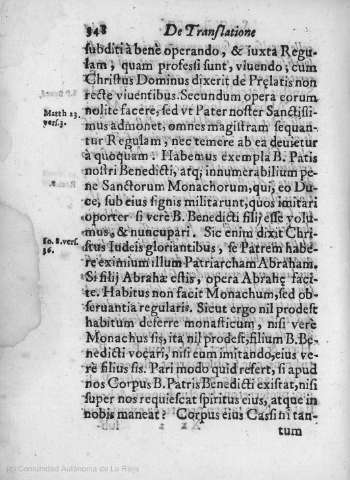 348 De Translatione
subditi à benè operando, & iuxta Regu-
lam, quam professi sunt, viuendo; cum
Christus Dominus dixerit de Pręlatis non
rectè viuentibus. Secundum opera eorum
Matth 23.
vers. 3.
nolite facere, sed vt Pater noster Sanctissi-
mus admonet, omnes magistram sequan-
tur Regulam, nec temere ab ea deuietur
à quoquam. Habemus exempla B. Patis
nostri Benedicti, atq; innumerabilium pe-
ne Sanctorum Monachorum, qui, eo Du-
ce, sub eius signis militarunt, quos imitari
oporter si verè B. Benedicti filij esse volu-
mus, & nuncupari. Sic enim dixit Chri-
Io. 8. vers.
36.
stus Iudeis gloriantibus, se Patrem habe-
re eximium illum Patriarcham Abraham.
Si filij Abrahæ estis, opera Abrahę faci-
te. Habitus non facit Monachum, sed ob-
seruantia regularis. Sicut ergo nil prodest
habitum deferre monasticum, nisi verè
Monachus sis, ita nil prodest, filium B. Be-
nedicti vocari, nisi eum imitando, eius ve-
rè filius sis. Pari modo quid refert, si apud
nos Corpus B. Patris Benedicti existat, nisi
super nos requiescat spiritus eius, atque in
nobis maneat? Corpus eius Cassini tan-
tum
(c) Comunidad Autónoma de La Rioja